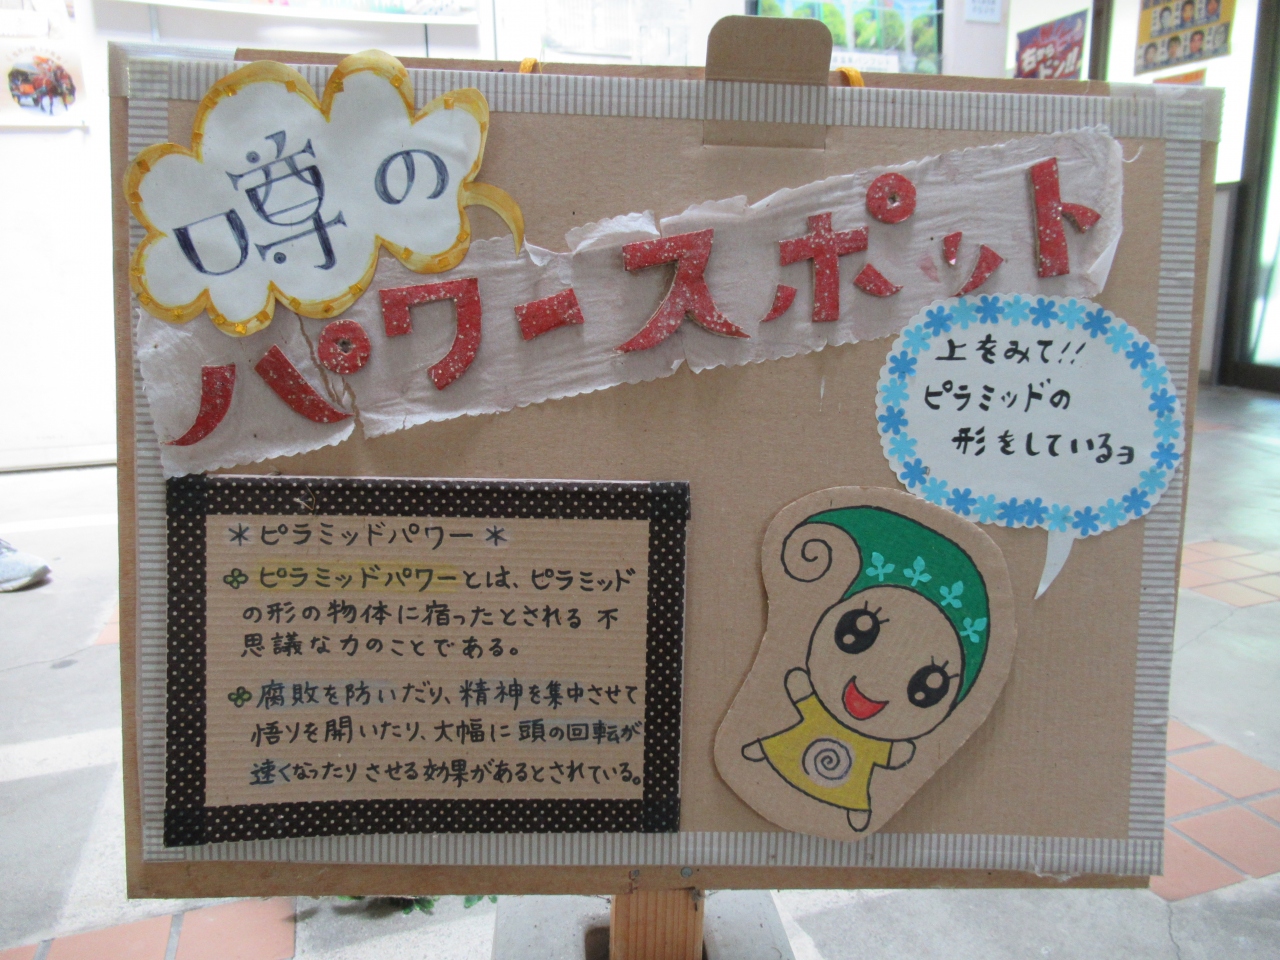 噂の
パワースポット
上をみて!!
ピラミッドの
形をしているヨ
＊ピラミッドパワー＊
ピラミッドパワーとは、ピラミッド
の形の物体に宿ったとされる不
思議な力のことである。
腐敗を防いだり、精神を集中させて
悟りを開いたり、大幅に頭の回転が
速くなったりさせる効果があるとされている。
右から
ドン!!